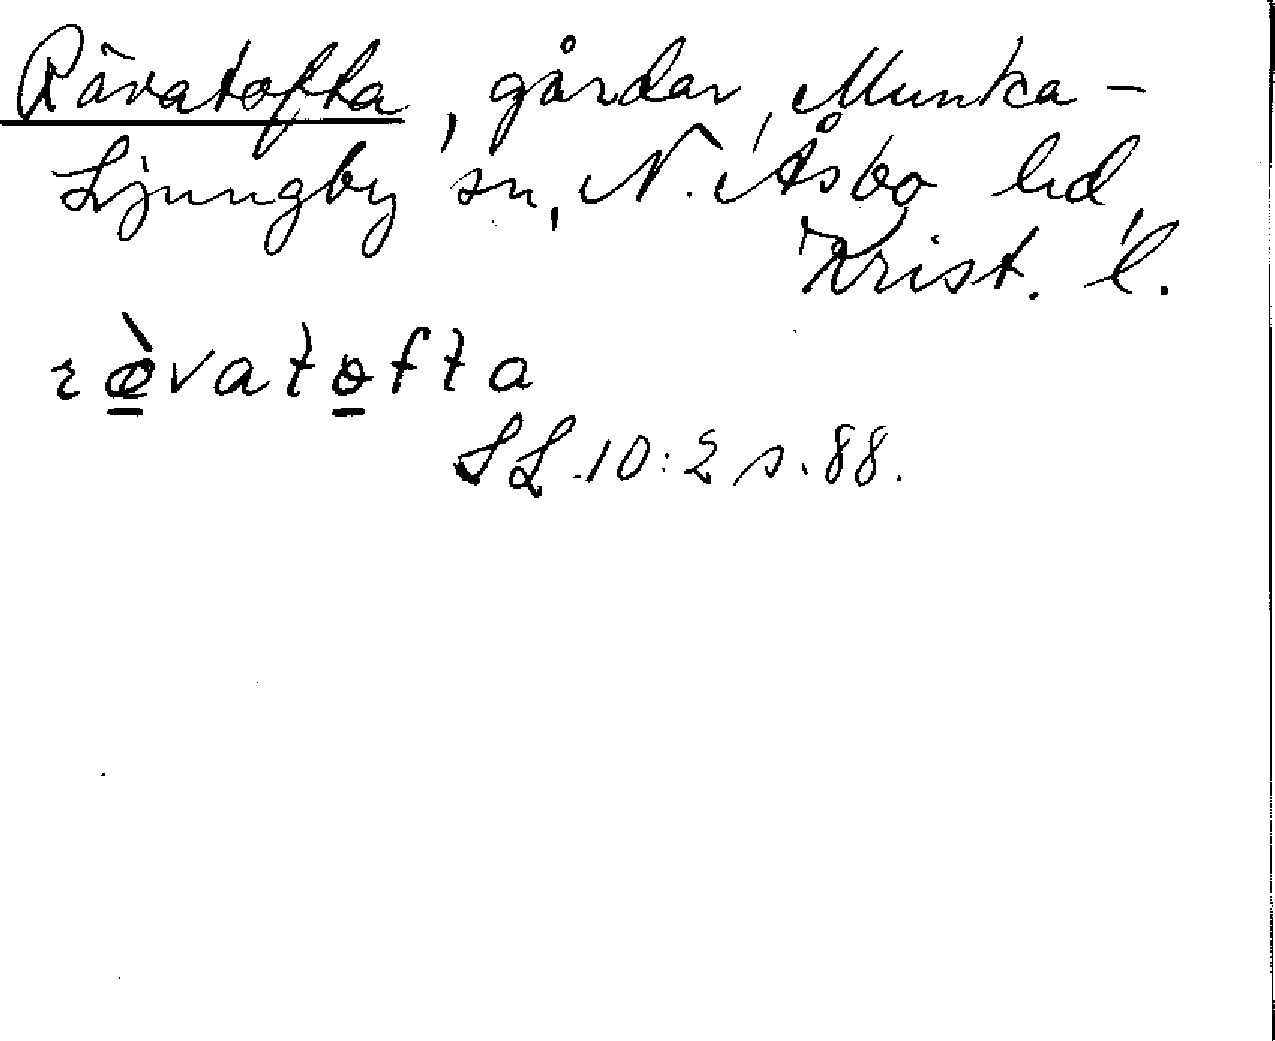 Rävatofta, gårdar, Munka-
Ljungby sn, N. Åsbo hd,
Krist. l.
ræ̱̀vato̱fta
SL 10:2 s. 88.